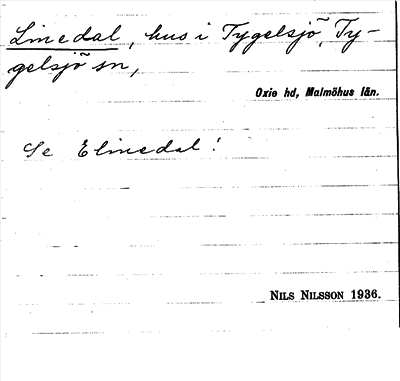 Linedal, hus i Tygelsjö, Ty-
gelsjö sn,
Oxie hd, Malmöhus län.
Se Elinedal!
NILS NILSSON 1936.